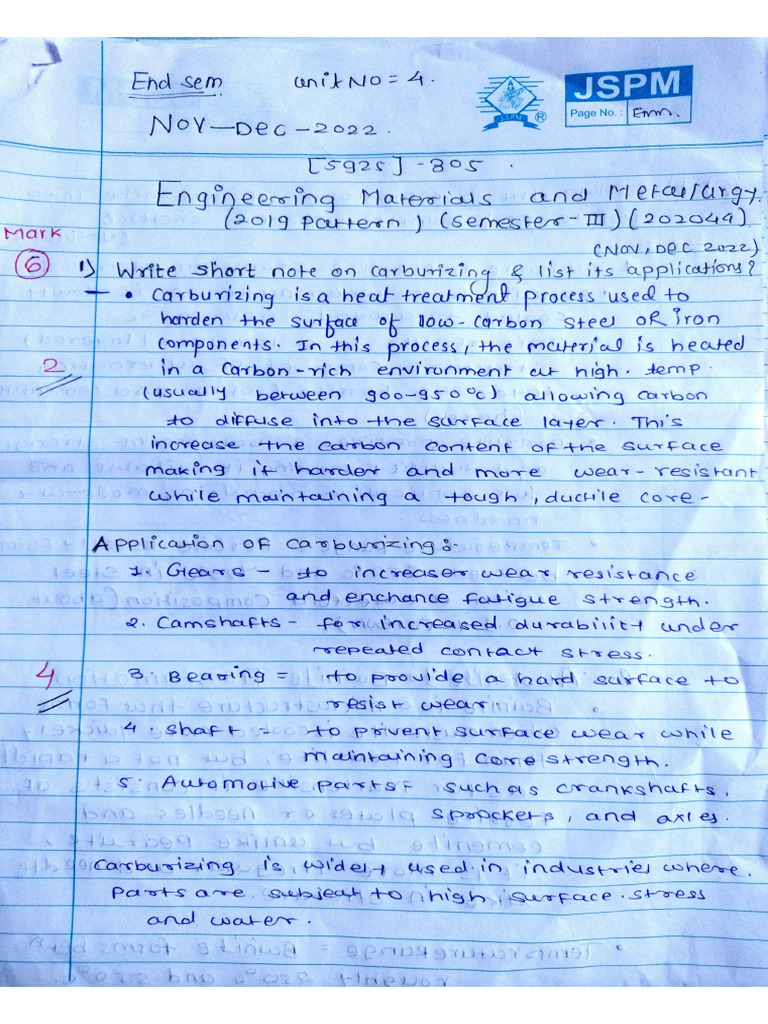 End sem unit NO = 4.
J.S.P.M. ®
JSPM
Page No. : Emm.
NOV-DEC-2022.
[5925] -305.
Engineering Materials and Metallurgy.
(2019 Pattern) (Semester-III) (202044)
Mark
(NOV, DEC 2022)
6 1) Write short note on carburizing & list its applications?
• Carburizing is a heat treatment process used to
harden the surface of low-carbon steel OR iron
components. In this process, the material is heated
2 in a carbon-rich environment at high. temp.
(usually between 900-950°C) allowing carbon
to diffuse into the surface layer. This
increase the carbon content of the surface
making it harder and more wear-resistant
while maintaining a tough, ductile core-
Application OF Carburizing :-
1. Gears - to increaser wear resistance
and enchance fatigue strength.
2. Camshafts - for increased durability under
repeated contact stress.
4 3. Bearing = to provide a hard surface to
resist wear
4. Shaft = to privent surface wear while
maintaining core strength.
5. Automotive parts = such as crankshafts,
sprockets, and axles.
Carburizing is widely used in industries where.
Parts are subject to high surface.stress
and water.